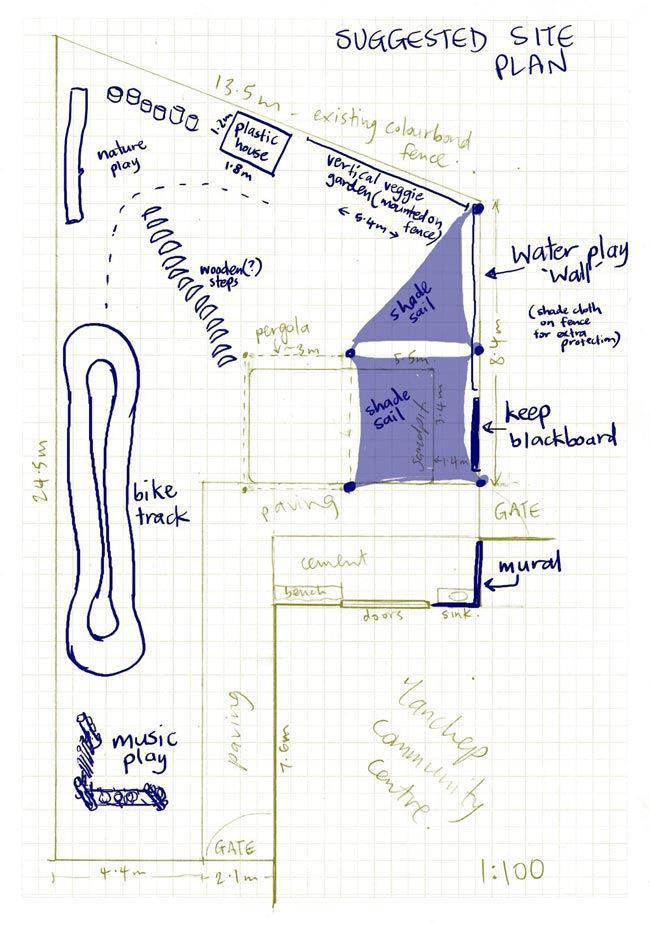 SUGGESTED SITE
PLAN
13.5m - existing colourbond
fence.
1.2m
plastic
house
1.8m
nature
play
vertical veggie
garden (mounted on
fence)
5.4m
Water play
"Wall"
(shade cloth
on fence
for extra
protection)
wooden(?)
steps
shade
sail
8.4m
pergola
~3m
5.5m
shade
sail
sandpit
3.4m
1.4m
keep
blackboard
24.5m
bike
track
paving
GATE
cement
bench
doors
sink.
mural
music
play
paving
7.6m
Yanchep
Community
Centre.
GATE
4.4m
2.1m
1:100